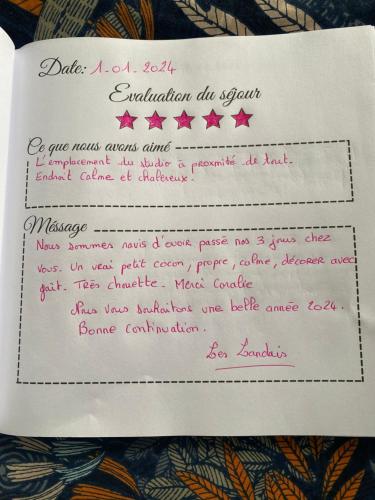 Date: 1.01.2024
Evaluation du séjour
Ce que nous avons aimé
L'emplacement du studio à proxmité de tout.
Endroit calme et chaleureux.
Méssage
Nous sommes navis d'avoir passé nos 3 jours chez
vous. Un vrai petit cocon, propre, calme, décorer avec
goût. Très chouette. Merci Coralie
Nous vous souhaitons une belle année 2024.
Bonne continuation.
Les Landais